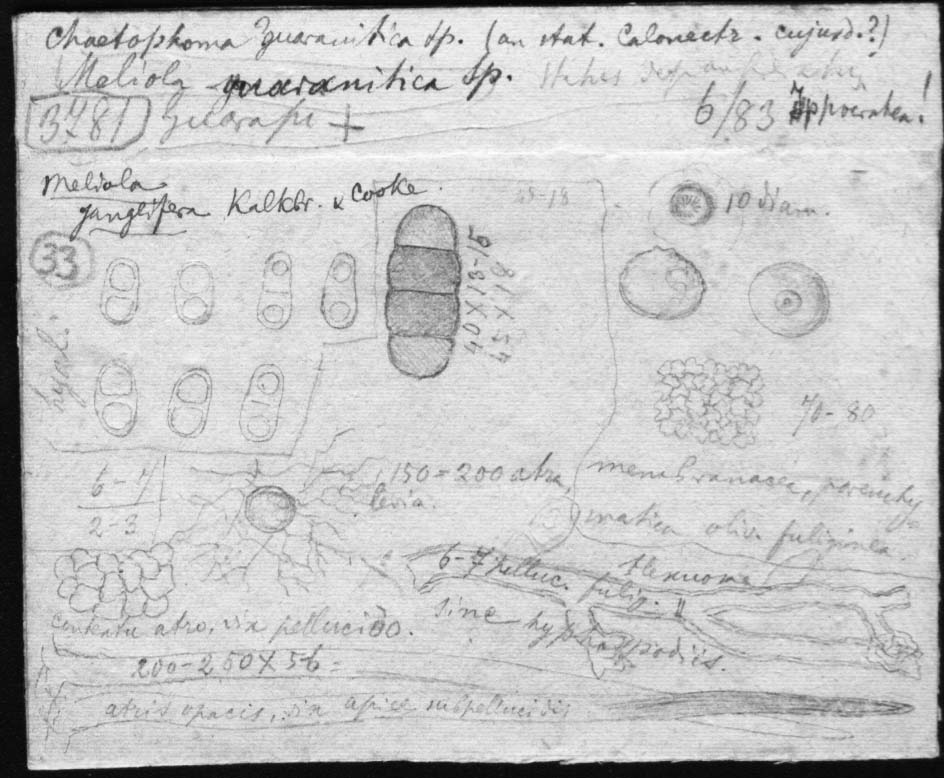 Chaetophoma Guaranitica Sp. (an stat. Calonectr. cujusd.?)
Meliola guaranitica Sp.
3781 Guarapi + 6/83 !
Meliola
ganglifera Kalkbr. & Cooke.
33
hyal.
40 X 13-15
45 X 18
45-18
10 diam.
70-80
6-7
2-3
150-200 atra,
levia.
membranacea, parenchy-
matica oliv. fuliginea
6-7 pelluc. fulig.
flexuosa
sine hyphopodiis.
contextu atro, vix pellucido.
200-250 X 5-6 =
atris opacis, vix apice subpellucidis